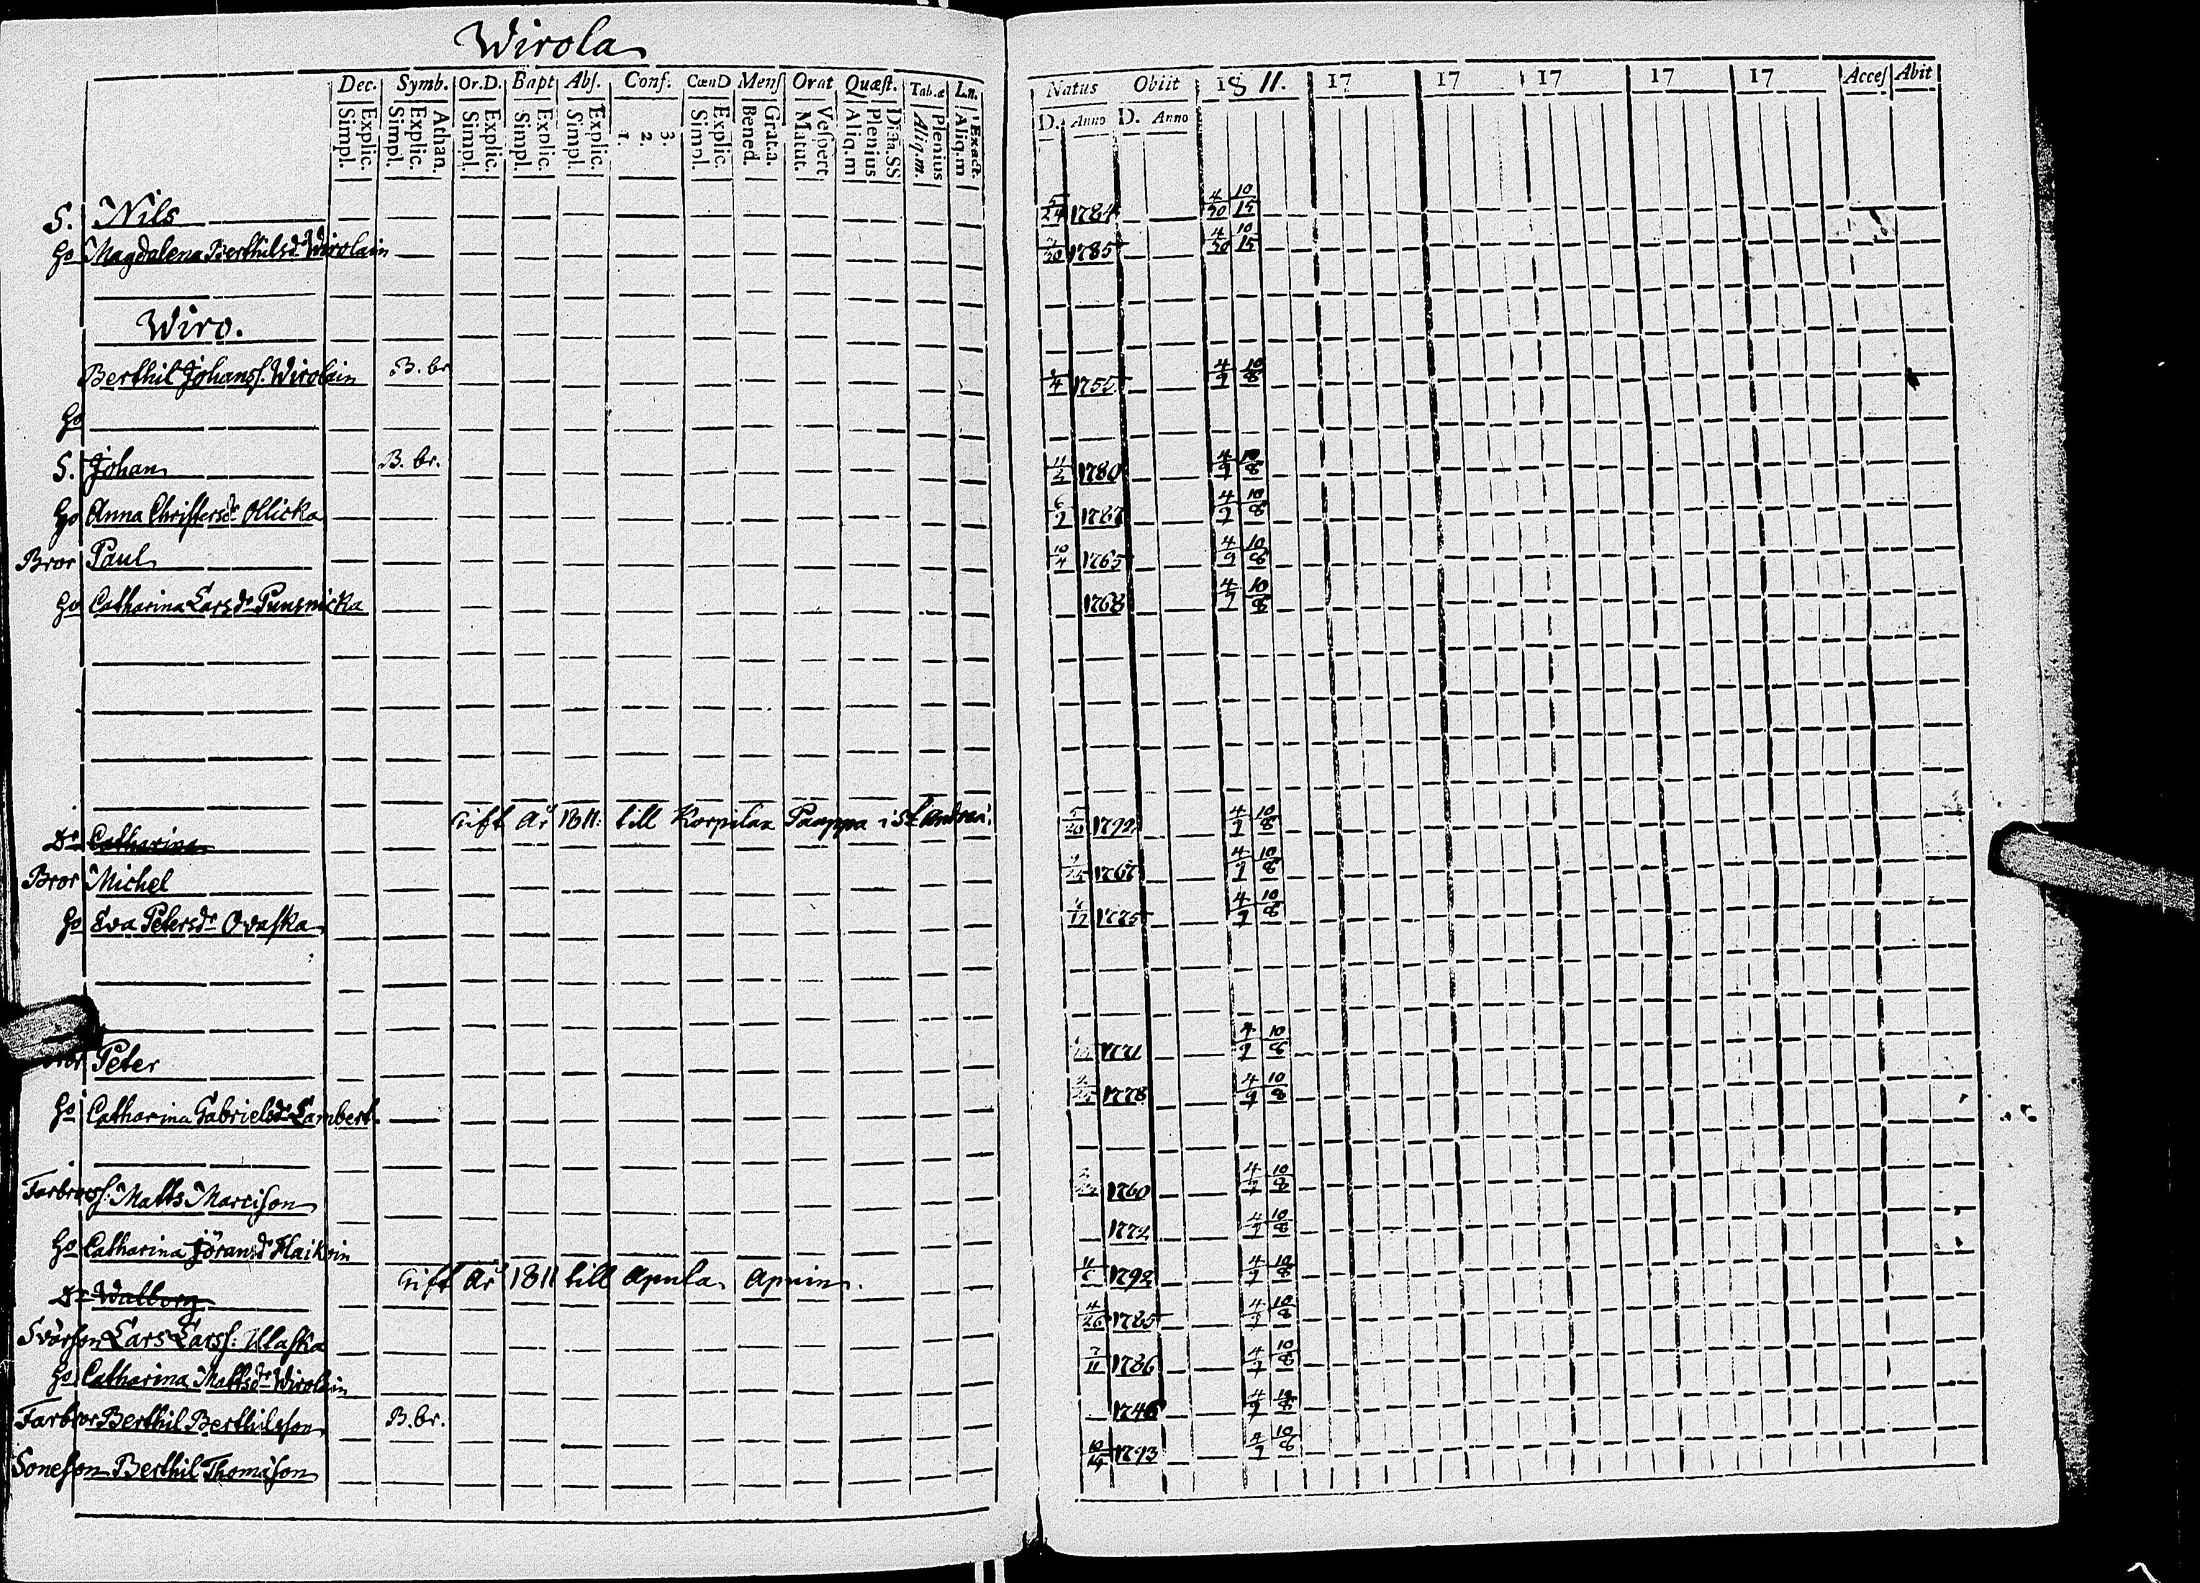 Wirola
Dec. Symb. Or.D. Bapt Abs. Conf. CœnD Mens Orat Quæst. Tab.æ L.n.
Explic. Simpl. Athan. Explic. Simpl. Explic. Simpl. Explic. Simpl. Explic. Simpl. 3. 2. 1. Explic. Simpl. Grat.a. Bened. Vespert Matut. Dicta.SS Plenius Aliq.m Plenius Aliq.m. Exact. Aliq.m
Natus Obiit 18 11. 17 17 17 17 17 Acces Abit
D. Anno D. Anno
S. Nils 5/24 1784 4/30 10/15
Ho Magdalena Berthilsdr Wirolain 1785 4/30 10/15
Wiro.
Berthil Johanss. Wirolain B. br 1752 4/9 10/8
Ho
S. Johan B. br. 11/2 1780 4/9 10/8
Ho Anna Christersdr Ollicka 6/9 1787 4/9 10/8
Bror Paul 10/4 1765 4/9 10/8
Ho Catharina Larsdr Punsnicka 1768 4/9 10/8
Gift År 1811: till Korpilax Paappa i St Andreæ.
Dr Catharina 5/20 1792 4/9 10/8
Bror Michel 1767 4/9 10/8
Ho Eva Petersdr Ovaska 1775 4/9 10/8
Peter 1771 4/9 10/8
Ho Catharina Gabrielsdr Lambert 1778 4/9 10/8
Farbrors s. Matts Marcison 1760 4/9 10/8
Ho Catharina Jöransdr Haikoin 1772 4/9 10/8
Gift År 1811 till Apula Apuin.
Dr Walborg 1792 4/9 10/8
Svärson Lars Larss: Ulaska 4/26 1785 4/9 10/8
Ho Catharina Mattsdr Wirolain 7/11 1786 4/9 10/8
Farbror Berthil Berthilsson B. br. 1746 4/9 10/8
Soneson Berthil Thomison 10/14 1793 4/9 10/8